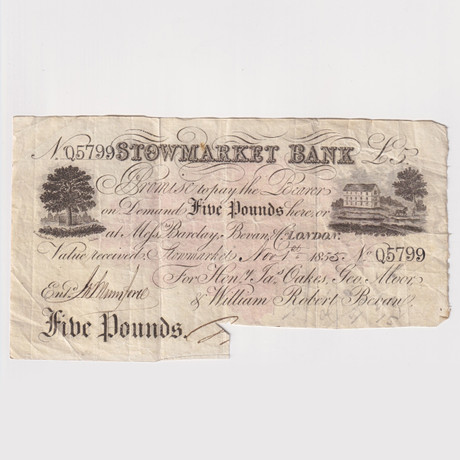 No. Q5799 STOWMARKET BANK £5
Promise to pay the Bearer
on Demand Five Pounds here or
at Messrs. Barclay, Bevan, & Co. LONDON.
Value received Stowmarket Nov 1st 1855. No. Q5799
For Henry, Jas. Oakes, Geo. Moor
& William Robert Bevan.
Entd.
Five Pounds.